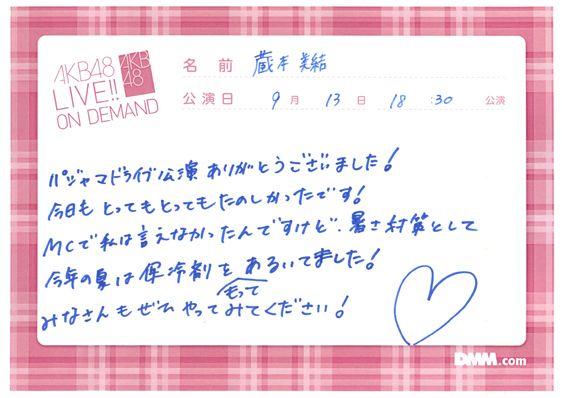 AKB48
LIVE!!
ON DEMAND
AKB
48
名前 蔵本美結
公演日 9月 13日 18:30 公演
パジャマドライブ公演ありがとうございました!
今日もとってもとってもたのしかったです!
MCで私は言えなかったんですけど、暑さ対策として
今年の夏は保冷剤をあるいてました!
もって
みなさんもぜひやってみてください!
DMM.com